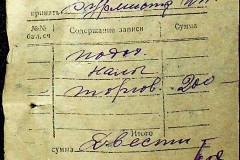 принять
№№ бал. сч Содержание записи Сумма
подох.
налог
торгов. 200—
Итого
сумма Двести